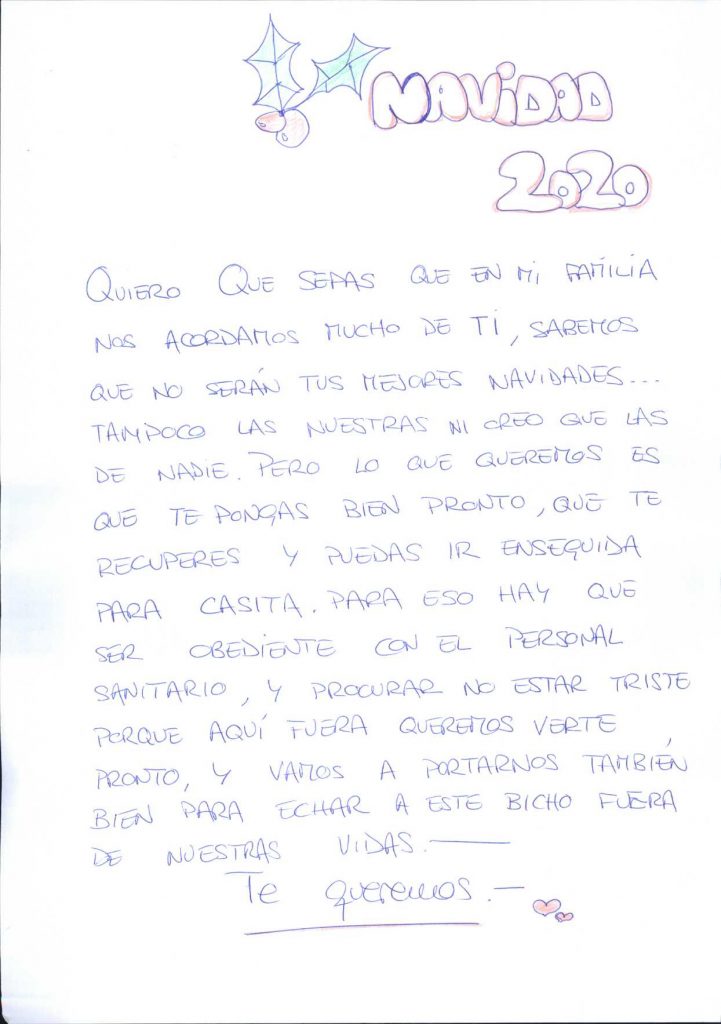 NAVIDAD
2020
QUIERO QUE SEPAS QUE EN MI FAMILIA
NOS ACORDAMOS MUCHO DE TI, SABEMOS
QUE NO SERÁN TUS MEJORES NAVIDADES...
TAMPOCO LAS NUESTRAS NI CREO QUE LAS
DE NADIE. PERO LO QUE QUEREMOS ES
QUE TE PONGAS BIEN PRONTO, QUE TE
RECUPERES Y PUEDAS IR ENSEGUIDA
PARA CASITA. PARA ESO HAY QUE
SER OBEDIENTE CON EL PERSONAL
SANITARIO, Y PROCURAR NO ESTAR TRISTE
PORQUE AQUÍ FUERA QUEREMOS VERTE
PRONTO, Y VAMOS A PORTARNOS TAMBIÉN
BIEN PARA ECHAR A ESTE BICHO FUERA
DE NUESTRAS VIDAS.—
Te queremos.—